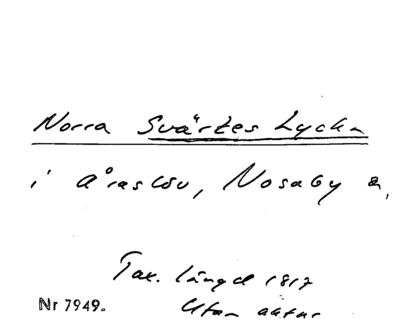 Norra Svärtes Lycka
i Åraslöv, Nosaby s,
Tax. längd 1817
Nr 7949. Utan aktnr